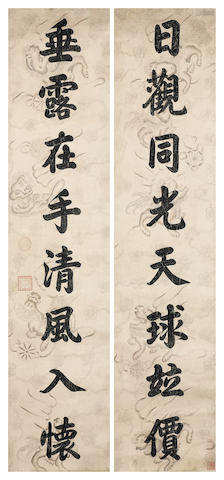 日觀同光天球竝價
垂露在手清風入懷